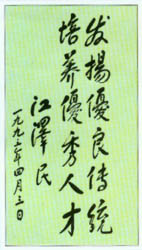 发揚優良传統
培养優秀人才
江澤民
一九九二年四月三日